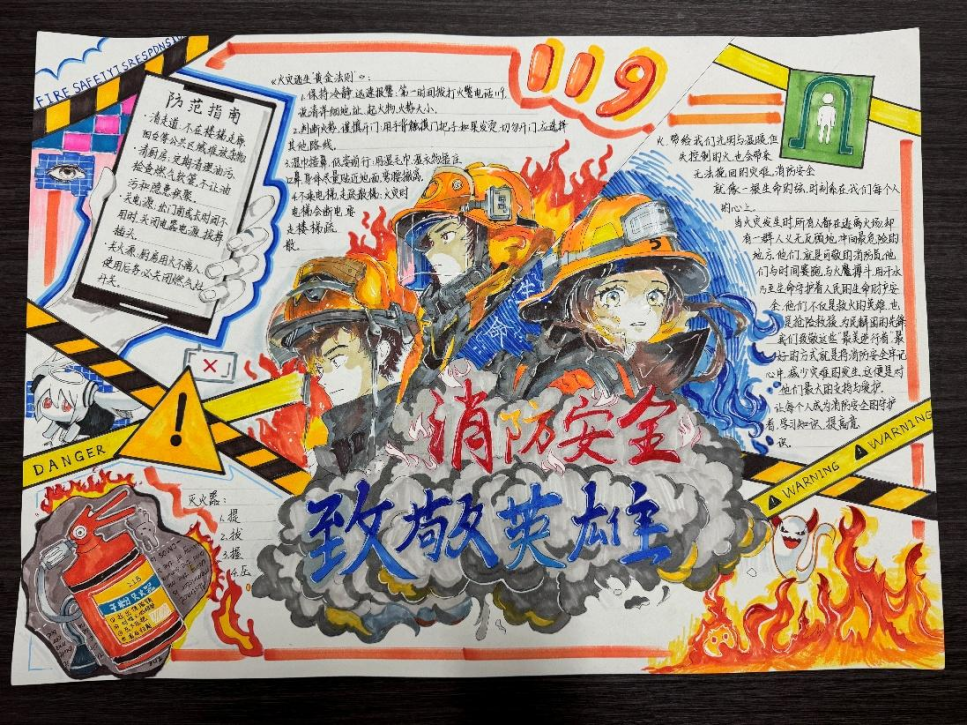 FIRE SAFETY IS RESPONSI
119
防范指南
·清走道:不在楼梯走廊
阳台等公共区域堆放杂物
·清厨房:定期清理油污,
检查燃气软管,不让油
污和隐患积聚。
·关电源:出门前或长时间不
用时,关闭电器电源,拔掉
插头。
·关火源:厨房用火不离人
使用后务必关闭燃气灶
开关。
《火灾逃生"黄金法则"》:
1.保持冷静,迅速报警:第一时间拨打火警电话119,
说清详细地址、起火物、火势大小。
2.判断火势,谨慎开门:用手背触摸门把手,如果发烫,切勿开门,应选择
其他路线。
4.不乘电梯,走疏散梯:火灾时
电梯会断电,应
走楼梯疏
散。
火,带给我们光明与温暖,但
失控制的火,也会带来
无法挽回的灾难。消防安全
就像一根生命的标,时刻系在我们每个人
的心上。
当火灾发生时,所有人都在逃离火场,却
有一群人义无反顾地冲向最危险的
地方,他们就是可敬的消防员。他
们与时间赛跑,与火魔搏斗,用汗水
乃至生命守护着人民的生命财产安
全。他们不仅是救火的英雄,也
是抢险救援、为民解困的先锋
我们致敬这些"最美逆行者"最
好的方式就是将消防安全牢记
心中,减少灾难的发生,这便是对
他们最大的支持与爱护。
让每个人成为消防安全的守护
者,学习知识,提高意
识。
生
命
消防安全
致敬英雄
DANGER
WARNING
WARNING
灭火器:
1.提
2.拔
3.握
4.压
干粉灭火器